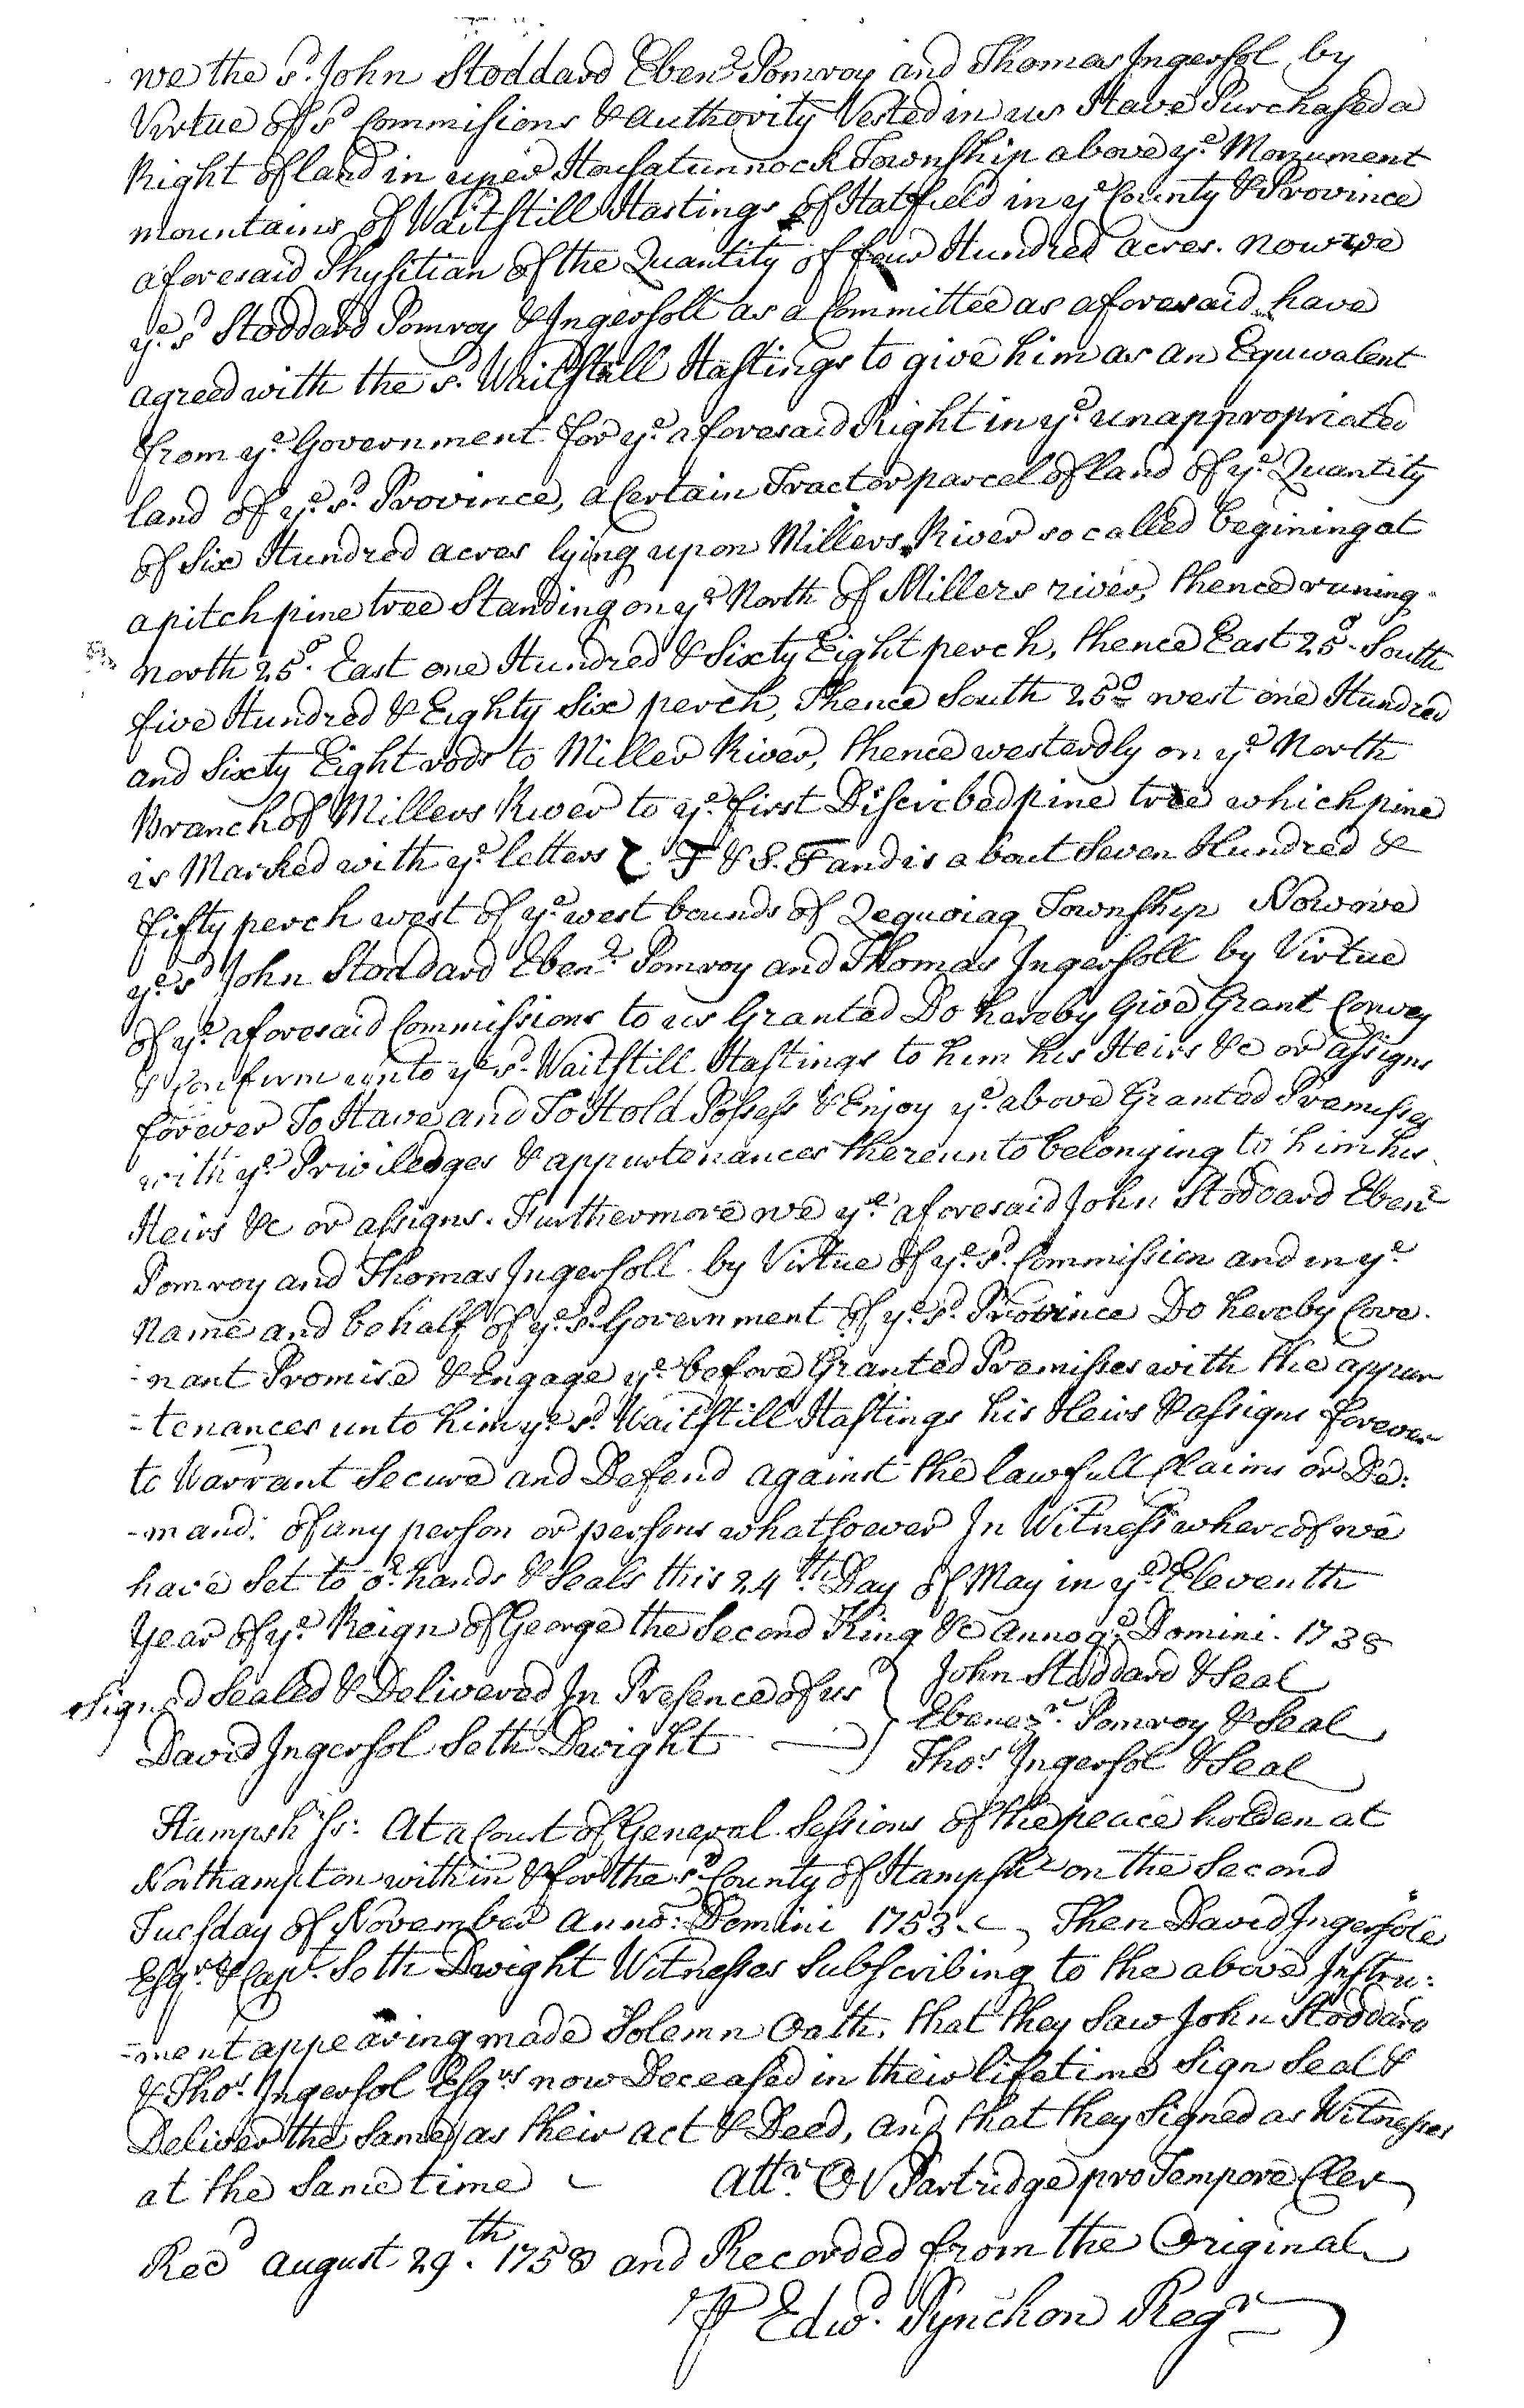 we the sd. John Stoddard Ebenr. Pomroy and Thomas Ingersol by
Virtue of sd Commisions & authority Vested in us Have Purchased a
Right of land in uper Housatunnock Township above ye. Monument
mountains of Waitstill Hastings of Hatfield in ye County & Province
aforesaid Physitian of the Quantity of four Hundred acres. now we
ye. sd Stoddard Pomroy & Ingersoll as a Committee as aforesaid have
agreed with the sd. Waitstill Hastings to give him as an Equivalent
from ye. Government for ye. aforesaid Right in ye. unappropriated
land of ye. sd. Province, a Certain Tract or parcel of land of ye. Quantity
of Six Hundred acres lying upon Millers River so called begining at
a pitch pine tree Standing on ye. North of Millers river, thence runing
North 25d. East one Hundred & Sixty Eight perch, thence East 25d. South
five Hundred & Eighty Six perch, Thence South 25d west one Hundred
and Sixty Eight rods to Miller River, thence westerdly on ye. North
Branch of Millers River to ye. first Discribed pine tree which pine
is Marked with ye. letters T & S. F and is about Seven Hundred &
fifty perch west of ye. west bounds of Pequoiag Township Now we
ye. sd John Stoddard Ebenr. Pomroy and Thomas Ingersoll by Virtue
of ye. aforesaid Commissions to us Granted Do hereby Give Grant Convey
& Confirm unto ye sd. Waitstill Hastings to him his Heirs &c or assigns
forever To Have and To Hold Possess & Enjoy ye. above Granted Premisses
with ye. Priviledges & appurtenances thereunto belonging to him his
Heirs &c or assigns. Furthermore we ye. aforesaid John Stoddard Ebenr
Pomroy and Thomas Ingersoll by Virtue of ye. sd. Commission and in ye.
Name and behalf of ye. sd. Government of ye. sd. Province Do hereby Cove-
-nant Promise & Engage ye. before Granted Premisses with the appur
-tenances unto him ye. sd. Waitstill Hastings his Heirs & assigns forever
to Warrant Secure and Defend against the lawfull Claims or De:
-mand. of any person or persons whatsoever In Witness whereof we
have Set to or. hands & Seals this 24th. Day of May in ye. Eleventh
Year of ye. Reign of George the Second King &c annoq. Domini. 1738
Signed Sealed & Delivered In Presence of us John Stoddard & Seal
Ebenezr. Pomroy & Seal
David Ingersol Seth Dwight Thos. Ingersol & Seal
Hampsh ss. At a Court of General Sessions of the peace holden at
Northampton within & for the sd County of Hampshr on the Second
Tuesday of November anno: Domini 1753 Then David Ingersole
Esqr. & Capt. Seth Dwight Witnesses Subscribing to the above Instru:
-ment appearing made Solemn Oath. that they Saw John Stoddard
& Thos. Ingersol Esqrs now Deceased in their lifetime Sign Seal &
Deliver the Same as their act & Deed, and that they Signed as Witnesses
at the Same time Attr. Ol Partridge pro Tempore Cler
Recd August 29th. 1758 and Recorded from the Original
P Edwd. Pynchon Regr